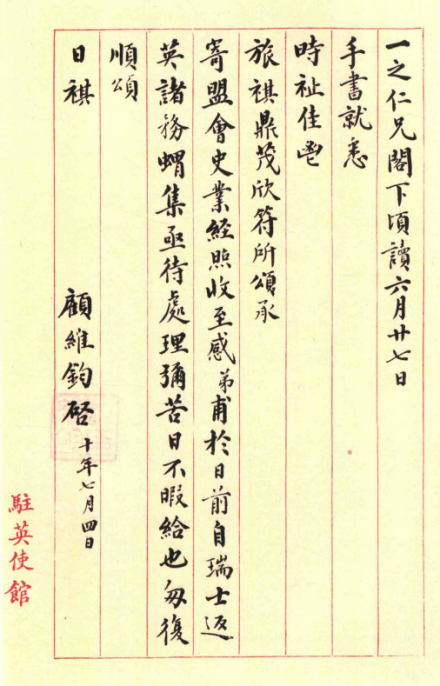 一之仁兄閣下頃讀六月廿七日
手書就悉
時祉佳鬯
旅祺鼎茂欣符所頌承
寄盟會史業經照收至感弟甫於日前自瑞士返
英諸務蝟集亟待處理彌苦日不暇給也匆復
順頌
日祺
顧維鈞啓 十年七月四日
駐英使館